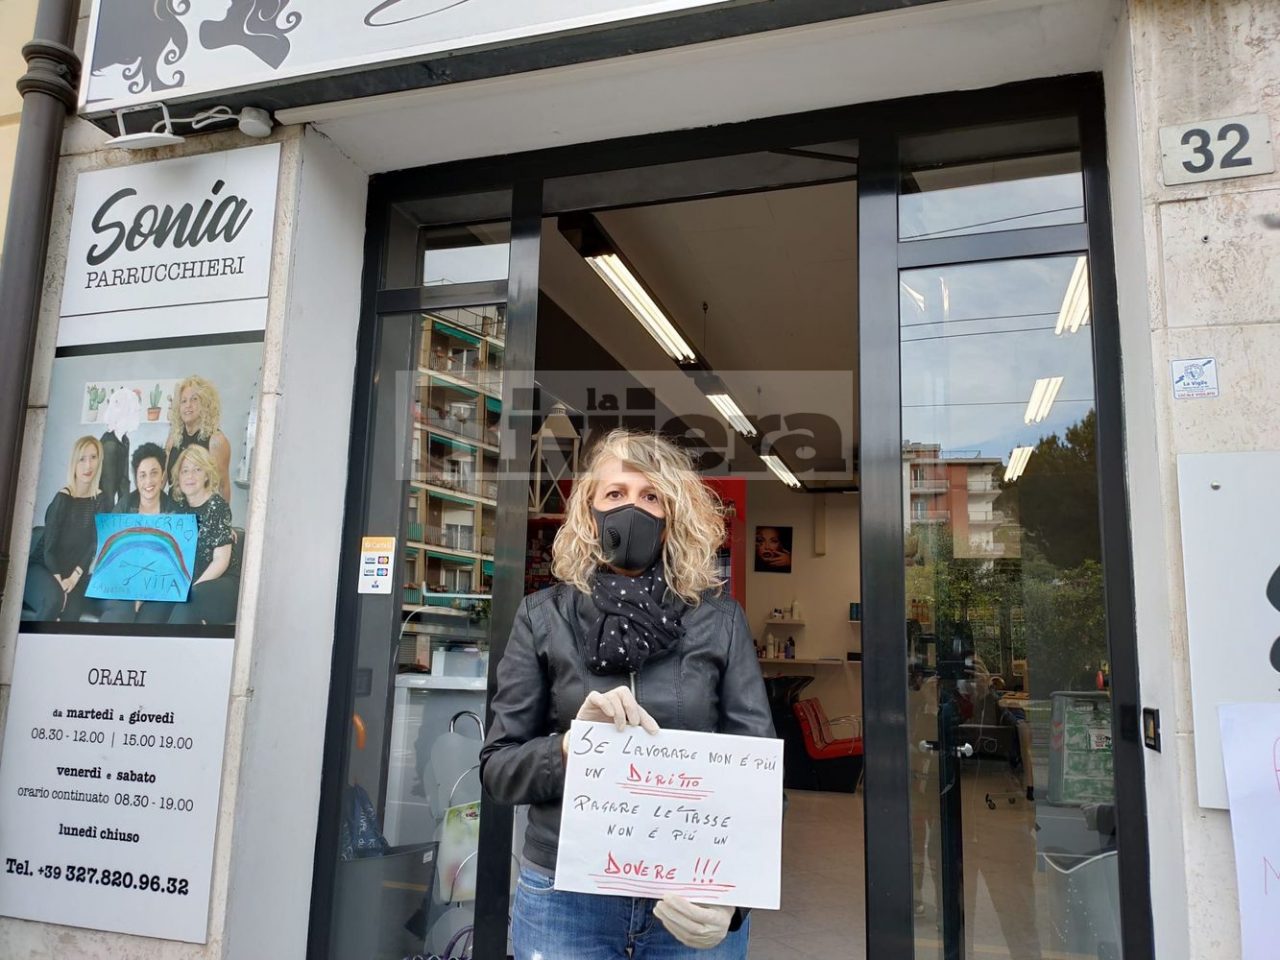 Sonia
PARRUCCHIERI
32
la
Riviera
La Vigile
LOCALE VIGILATO
CartaSi
VISA
VITA
ORARI
da martedì a giovedì
08.30 - 12.00 | 15.00 19.00
venerdì e sabato
orario continuato 08.30 - 19.00
lunedì chiuso
Tel. +39 327.820.96.32
SE LAVORARE NON É PIÚ
UN DIRITTO
PAGARE LE TASSE
NON É PIÚ UN
DOVERE !!!